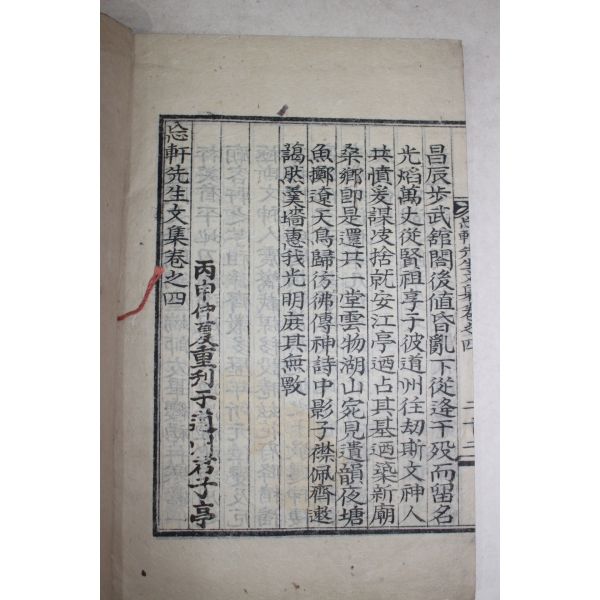 忘軒先生文集卷之四
昌辰步武舘閣後値昏亂下從逄干歿而留名
光焰萬丈從賢祖享于彼道州往劫斯文神人
共憤爰謀皮捨就安江亭廼占其基廼築新廟
桑鄕卽是還共一堂雲物湖山宛見遺韻夜塘
魚擲遼天鳥歸彷彿傳神詩中影子襟佩齊遫
藹然羹墻惠我光明庶其無斁
丙申仲夏重刊于道州君子亭
忘軒先生文集卷之四